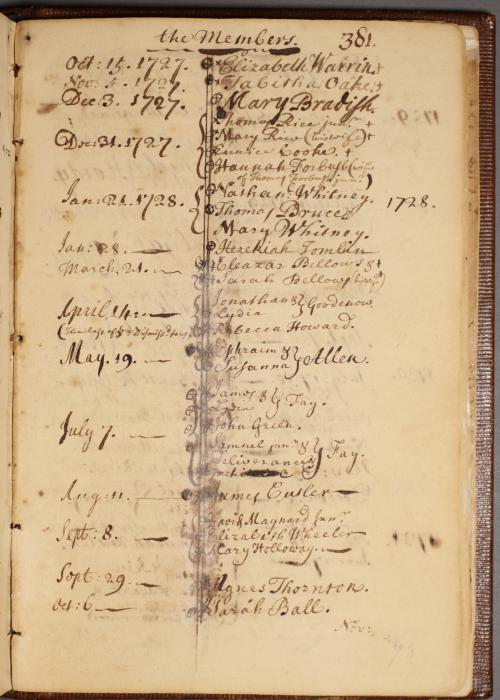 the Members. 381.
Oct: 15. 1727. Elizabeth Warrin. +
Nov: 5. 1727. Tabitha Oake. +
Dec: 3. 1727. Mary Bradish.
Thomas Rice junr +
Dec: 31. 1727. Mary Rice (his wife) +
Eunice Cooke. +
Hannah Forbush (wife
of Thomas Forbush junr.)
Jan: 21. 1728. Nathan: Whitney. 1728.
Thomas Bruce
Mary Whitney.
Jan: 28. Hezekiah Tomlin
March. 21. Eleazar Bellows &
Sarah Bellows (his wife)
April. 14: Jonathan & Lydia } Goodenow
Rebecca Howard.
May. 19. Ephraim & Susanna } Allen.
James & } Fay.
John Green.
July 7. Samuel junr & Deliverance } Fay.
Aug: 11. James Cutler
David Maynard Junr
Sept: 8. Elizabeth Wheeler
Mary Holloway.
Sept: 29. Agnes Thornton.
Oct: 6 Sarah Ball.
Nov: